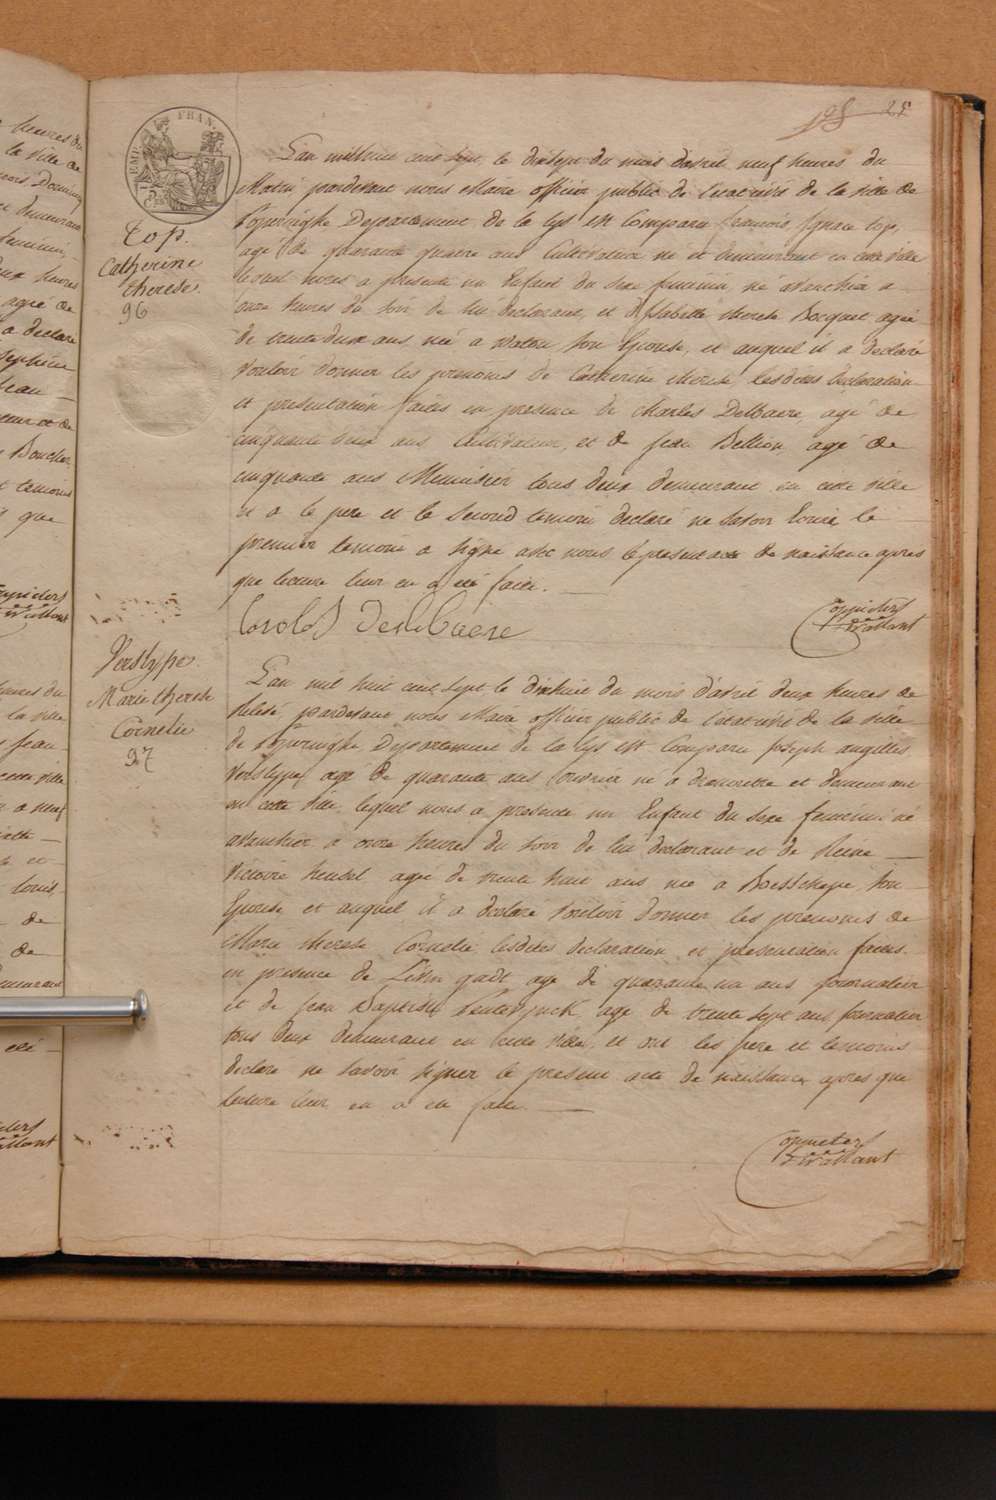 25
EMP. FRAN.
Top.
Catherine
therese.
96
L'an mil huit cent sept, le dix sept du mois d'avril neuf heures du
Matin pardevant nous Maire officier public de l'etat civil de la ville de
Poperinghe Departement de la Lys est Comparu francois Ignace top,
agé de quarante quatre ans Cultivateur né et demeurant en cette ville
lequel nous a presenté un Enfant du sexe feminin né avanthier a
onze heures du soir de lui declarant, et d'Isabelle therese Bocquet agée
de trente deux ans née a watou son Epouse, et auquel il a declaré
vouloir donner les prenoms de Catherine therese lesdites declaration
et presentation faites en presence de Charles Delbaere, agé de
cinquante deux ans Cultivateur, et de jean Bellion agé de
cinquante ans Menuisier tous deux demeurant en cette ville
et a le pere et le second temoin declaré ne savoir Ecrire le
premier temoin a signé avec nous le present acte de naissance apres
que lecture leur en a été faite.
Carolus Delbaere
Verslype.
Marie therese
Cornelie
97
L'an mil huit cent sept le dixhuit du mois d'avril deux heures de
relevé pardevant nous Maire officier public de l'etat civil de la ville
de Poperinghe Departement de la Lys est Comparu joseph
Verslype agé de quarante ans Couvrier né a et demeurant
en cette ville lequel nous a presenté un Enfant du sexe feminin né
avanthier a onze heures du soir de lui declarant et de Reine
Victoire agée de trente huit ans née a Boesschepe son
Epouse et auquel il a declaré vouloir donner les prenoms de
Marie therese Cornelie lesdites declaration et presentation faites
en presence de agé de quarante un ans journalier
et de jean Baptiste agé de trente sept ans journalier
tous deux demeurant en cette ville, et ont les pere et temoins
declaré ne savoir signer le present acte de naissance apres que
lecture leur en a été faite.